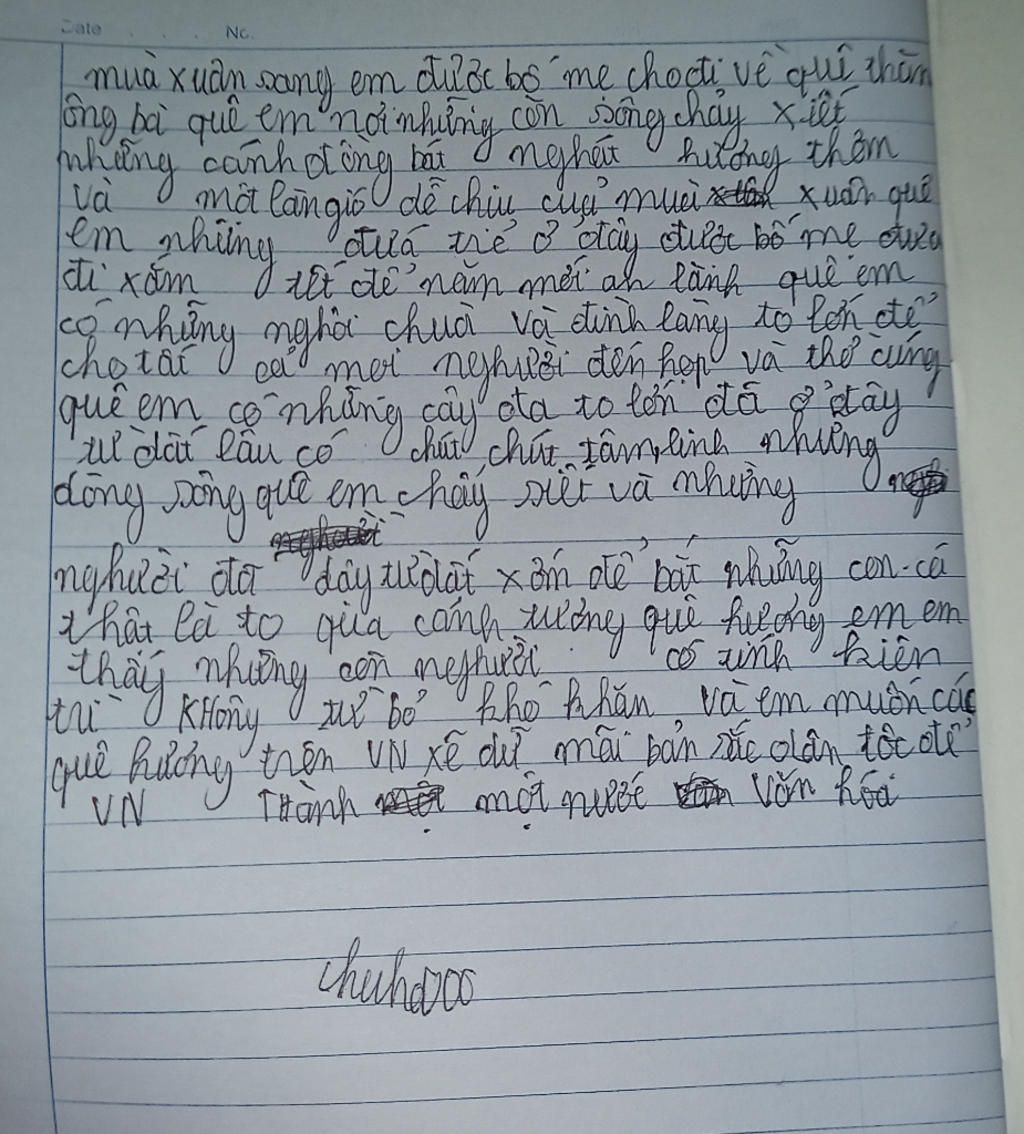 Date No.
mùa xuân sang em được bố mẹ cho đi về quê thăm
ông bà quê em nơi những còn sông chảy xiết
những cánh đòng bát nghát hương thơm
và một làn gió dễ chịu của muà xuân quê
em những đứa trẻ ở đây được bố mẹ đưa
đi xắm tết để năm mới an lành quê em
có những nghôi chuà và đình làng to lớn để
cho tất cả mọi nghười đến họp và thờ cúng
quê em có những cây đa to lớn đã ở đây
từ dất lâu có chút chút tâm linh những
dòng sông quê em chảy siết và những
nghười đã dạy từ dất xớm để bắt những con cá
thật là to qua cánh tượng quê hương em em
thấy những con nghười có tính kiên
trì KHông từ bỏ khó khăn và em muốn các
quê hương trên VN xẽ dữ mãi bản sắc dân tộc để
VN THành một nước văn hóa